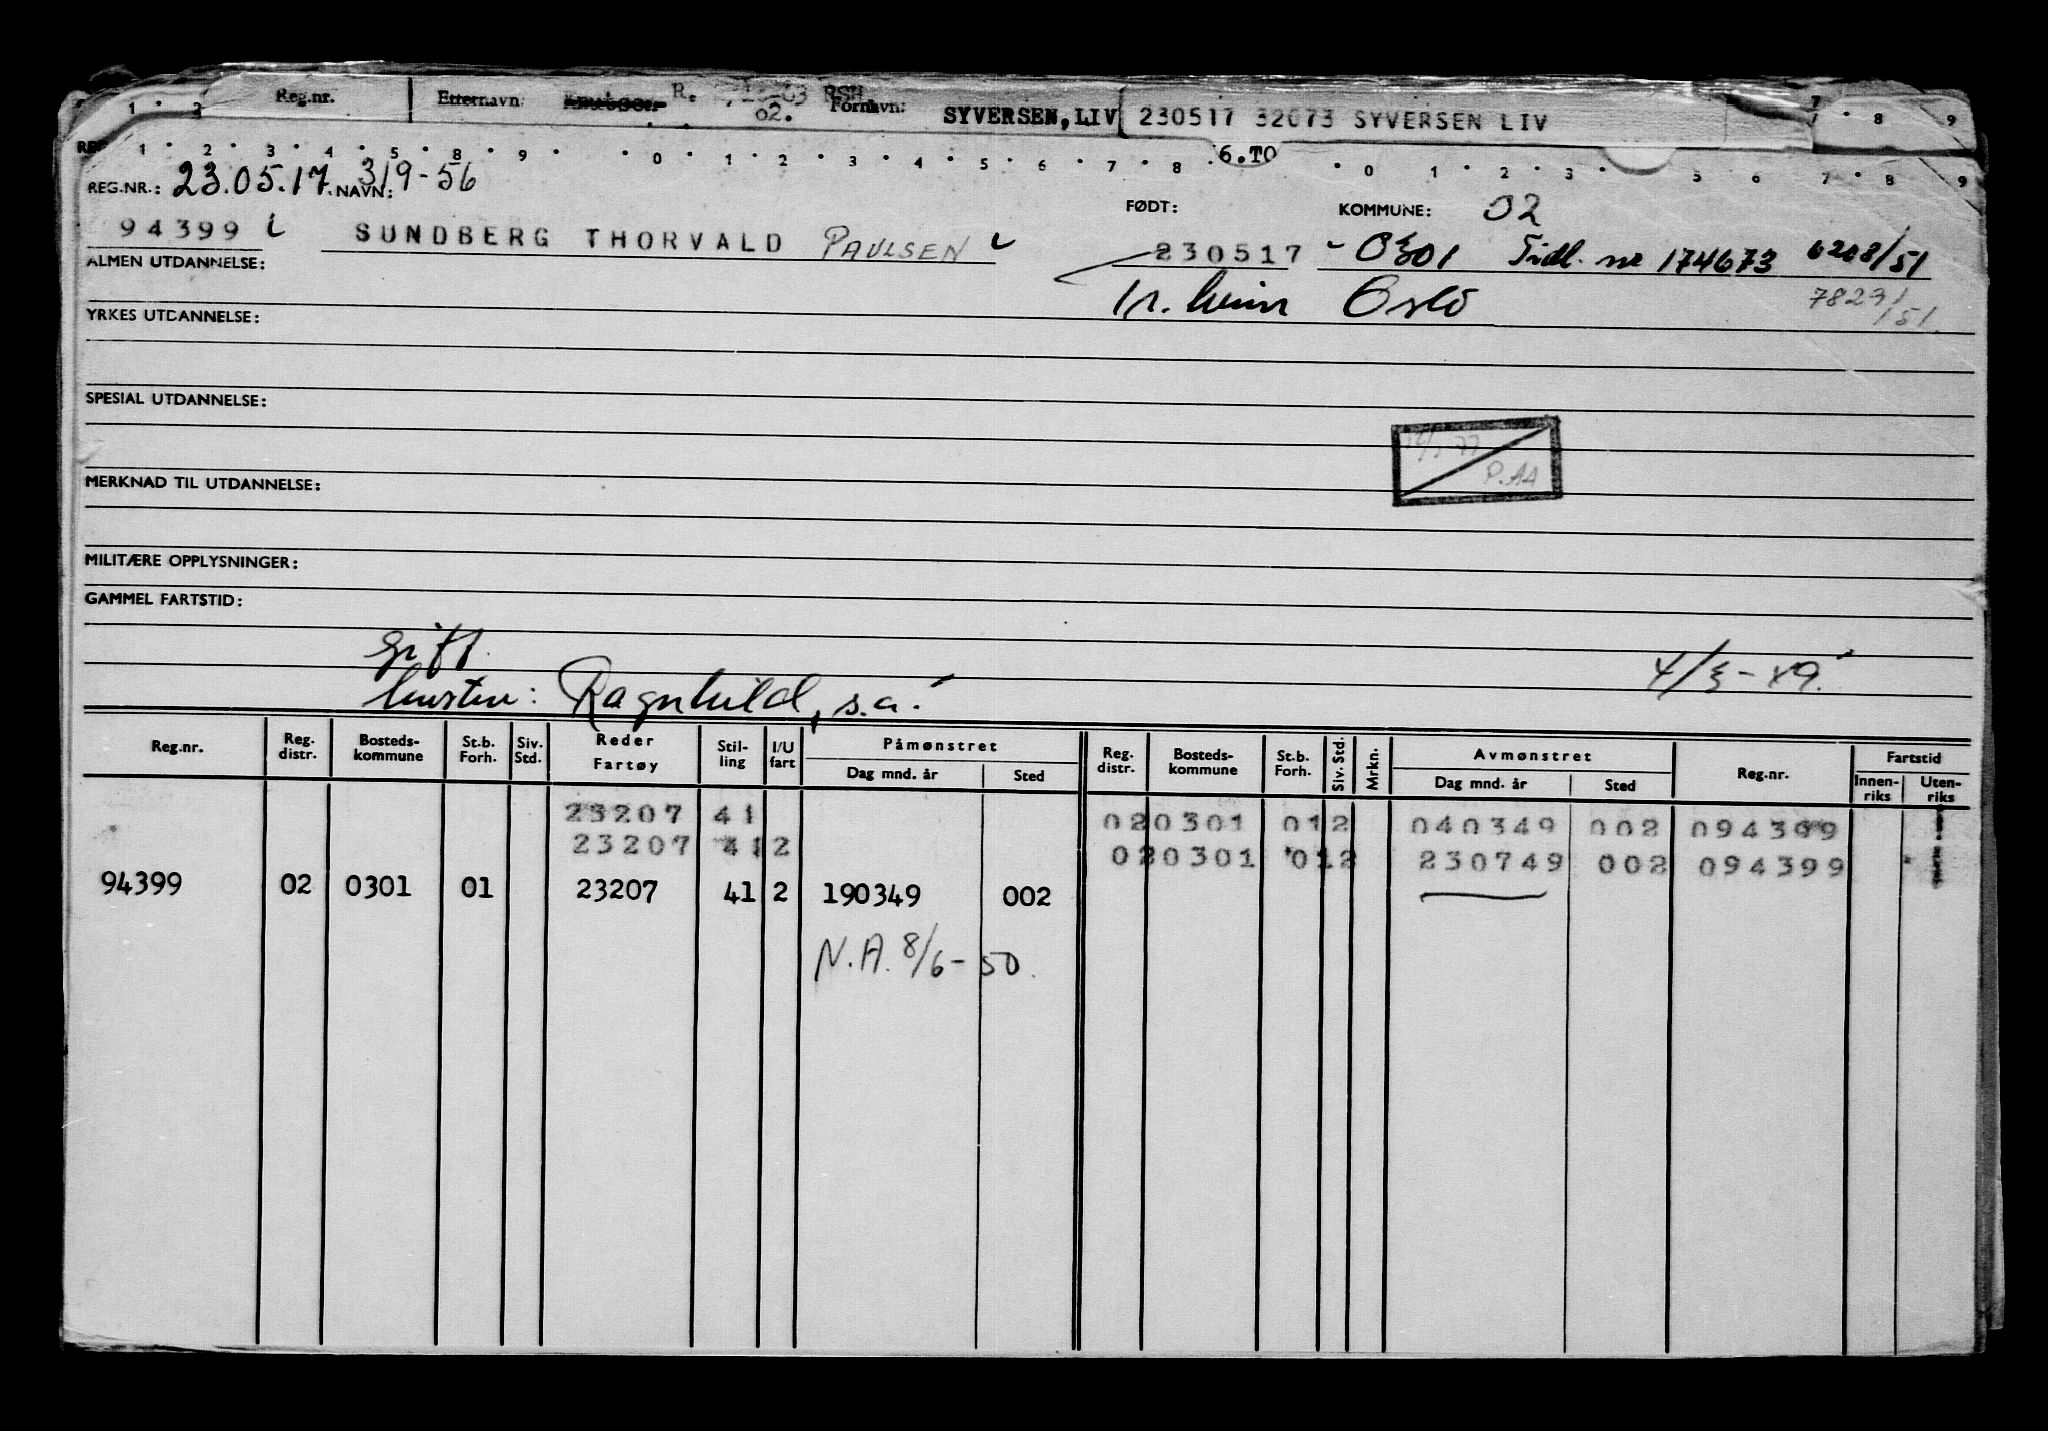 1 2 Reg.nr. Etternavn: R. 02. Fornavn: SYVERSEN, LIV 230517 32073 SYVERSEN LIV 7 8 9
1 2 3 4 5 8 9 0 1 2 3 4 5 6 7 8 6.TO 0 1 2 3 5 6 7 8 9
REG.NR.: 23.05.17. NAVN: 3/9-56 FØDT: KOMMUNE: 02
94399 SUNDBERG THORVALD PAULSEN 230517 - 0301 Tidl. nr 174673 6208/51
ALMEN UTDANNELSE: Tr.heim Oslo 7829/51.
YRKES UTDANNELSE:
SPESIAL UTDANNELSE:
P.AA
MERKNAD TIL UTDANNELSE:
MILITÆRE OPPLYSNINGER:
GAMMEL FARTSTID:
Gift.
hustru: Ragnhild, s.a. 4/3-49.
Reg.nr. Reg. distr. Bosteds-kommune St.b. Forh. Siv. Std. Reder Fartøy Stil-ling I/U fart Påmønstret Dag mnd. år Sted Reg. distr. Bosteds-kommune St.b. Forh. Siv. Std. Mrkn. Avmønstret Dag mnd. år Sted Reg.nr. Fartstid Innen-riks Uten-riks
23207 41 020301 012 040349 002 094399
23207 412 020301 012 230749 002 094399
94399 02 0301 01 23207 41 2 190349 002
N.A. 8/6-50.